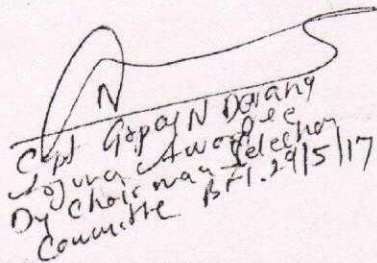 Cpt Gopal N Devang
Arjuna Awardee
Dy Chairman Selection
Committee BFI. 29/5/17